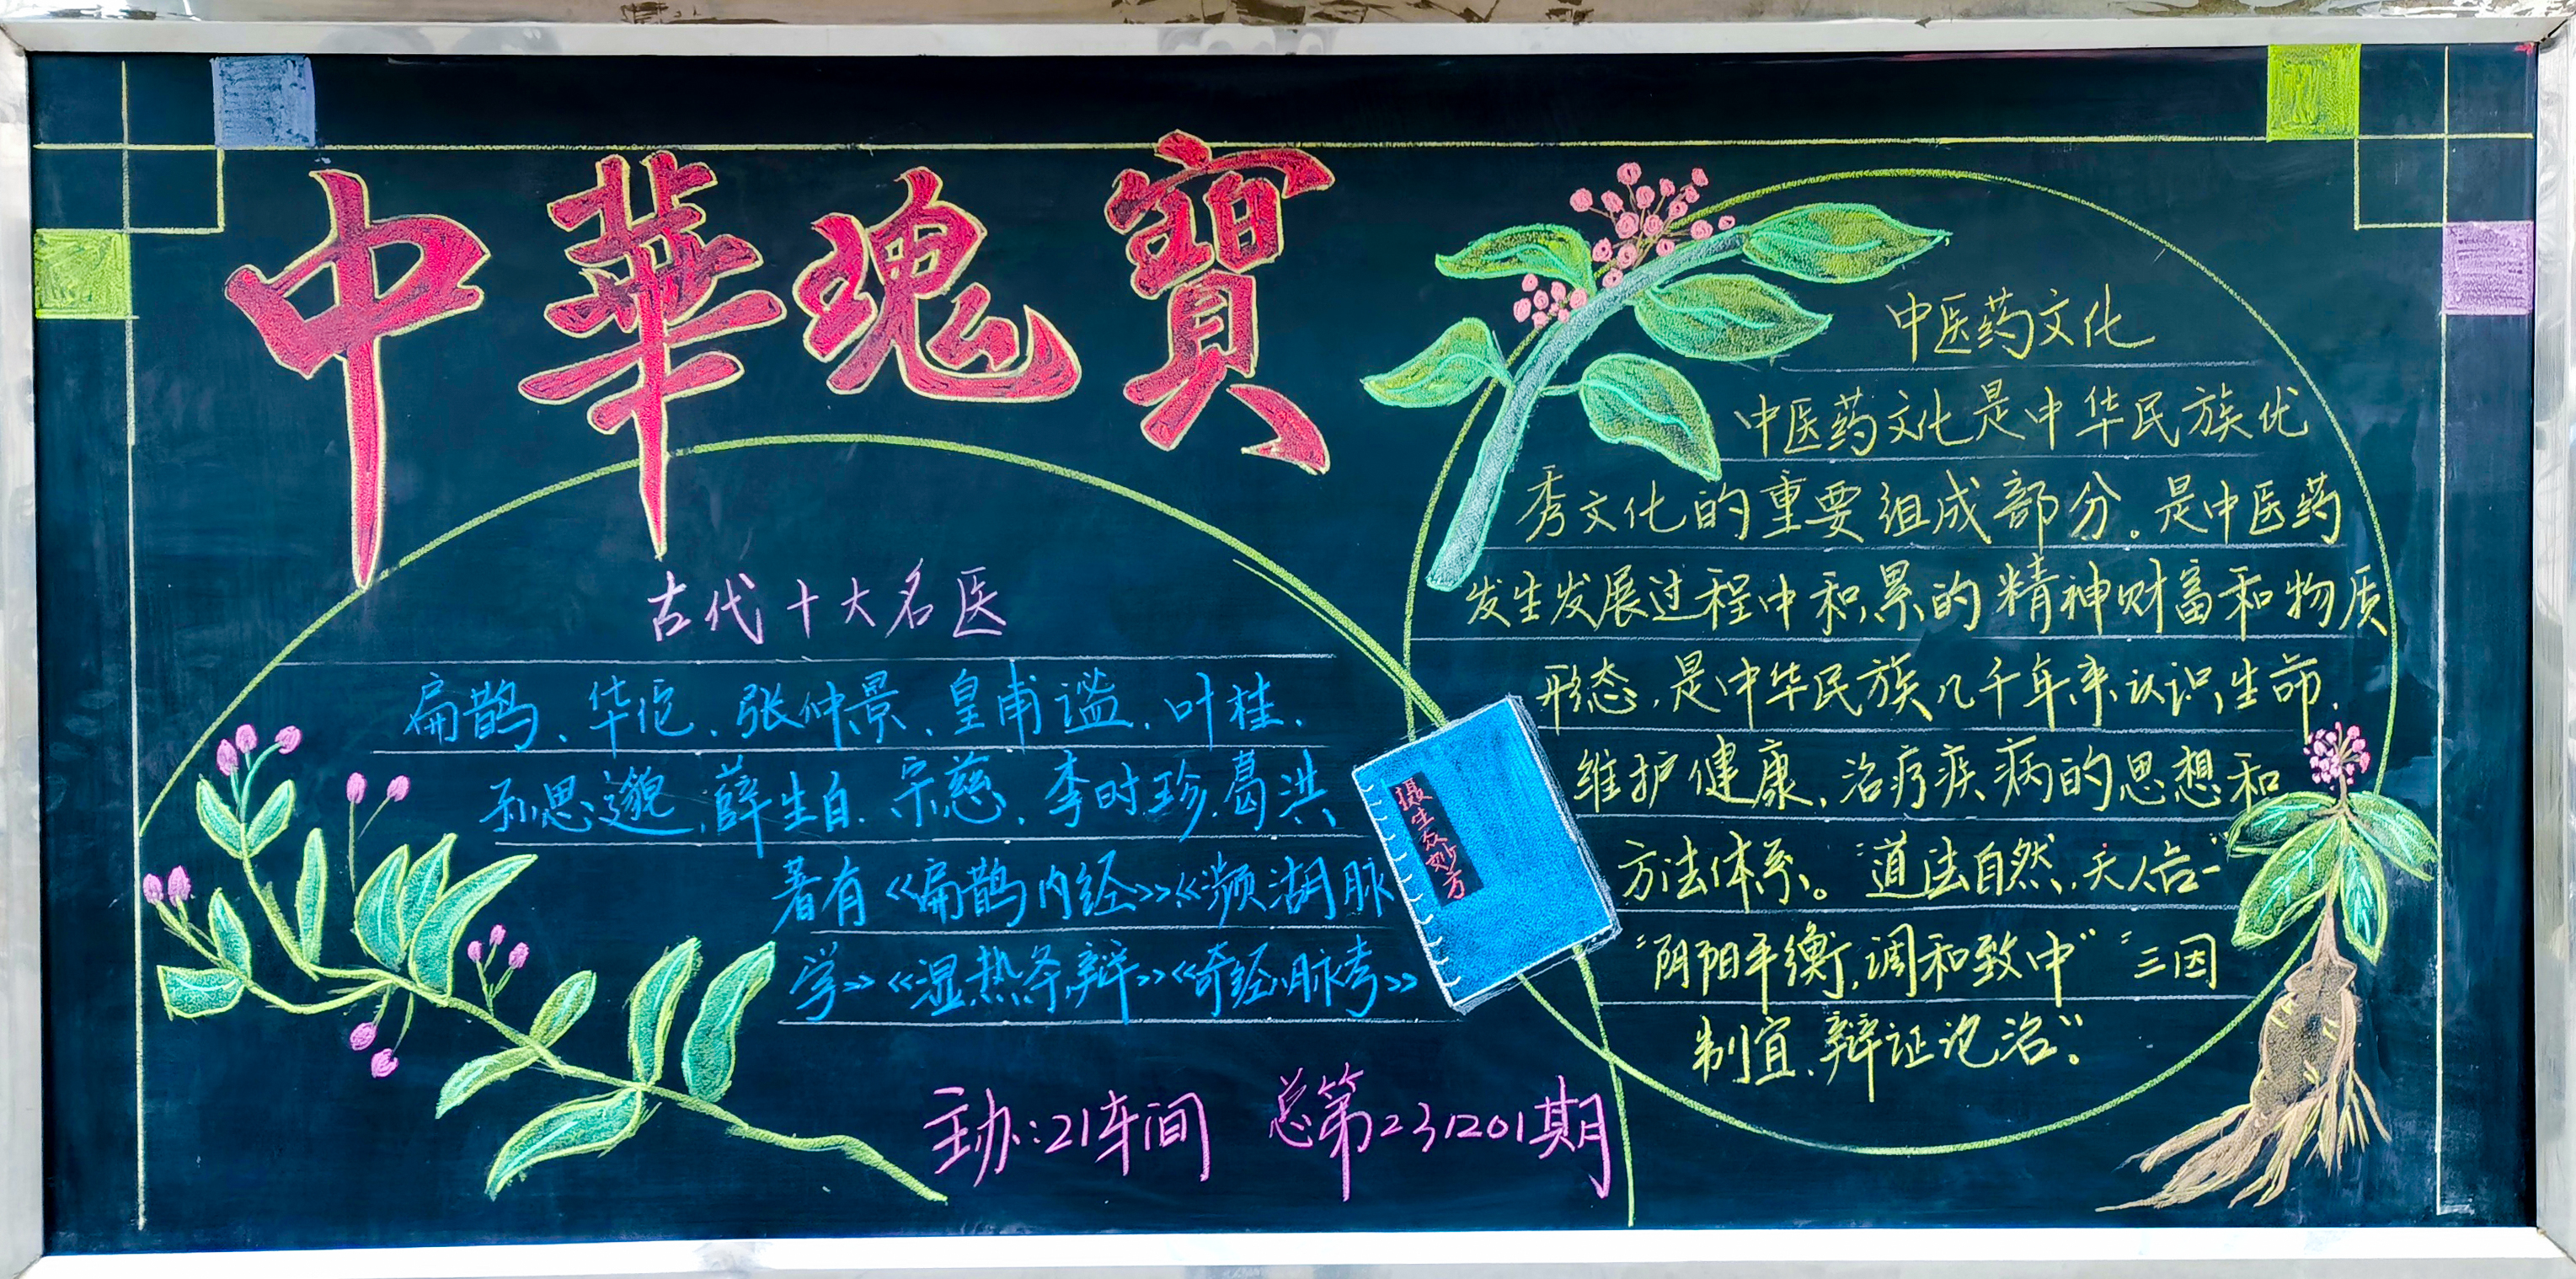 中華瑰寶
古代十大名医
扁鹊、华佗、张仲景、皇甫谧、叶桂、
孙思邈、薛生白、宋慈、李时珍、葛洪
著有《扁鹊内经》《濒湖脉
学》《湿热条辩》《奇经脉考》
主办:21车间 总第231201期
摄生众妙方
中医药文化
中医药文化是中华民族优
秀文化的重要组成部分。是中医药
发生发展过程中积累的精神财富和物质
形态,是中华民族几千年来认识生命、
维护健康、治疗疾病的思想和
方法体系。“道法自然,天人合一”
“阴阳平衡,调和致中”“三因
制宜、辩证论治”。